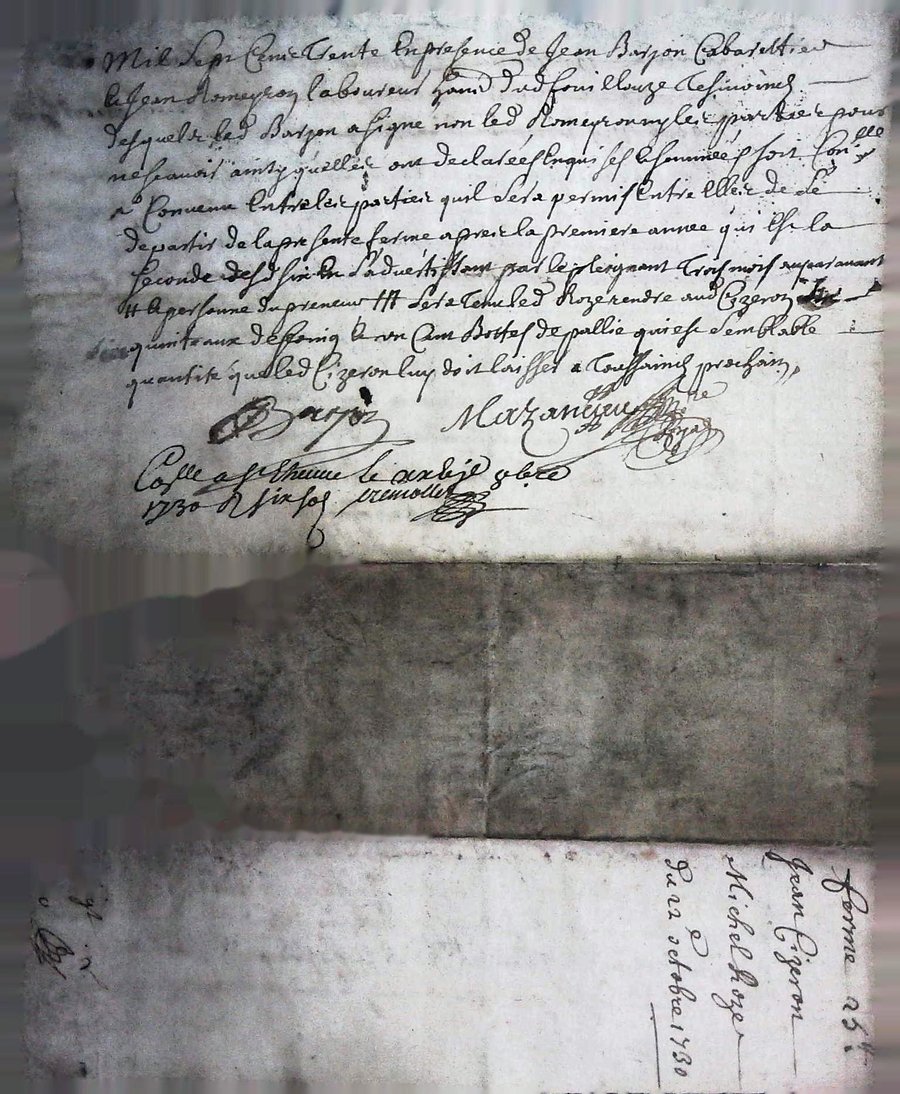 Mil Sept Cent Trente En presence de Jean Barjon Cabarettier
& Jean Romeyron laboureur dud fouillouze Tesmoings
desquels led Barjon a signé non led Romeyron ny les parties pour
ne scavoir ainsy quelles ont declarées Enquises & sommées soit Con.lle
a Convenu Entre les parties quil sera permis Entre Elles de se
departir de la presente ferme apres la premiere annee qui Est la
seconde En Sadvertissant par le pleignant Trois mois auparavant
# & personne du preneur ### sera Tenu led Roze rendre aud Cizeron
quinteaux de foing & un Cent Bottes de pallie qui est semblable
quantité que led Cizeron luy doit laisser a Toussainct prochain
Barjon Mazancieu
Colle a St Etienne le 8bre
1730 R six sols
ferme 25tt
Jean Cizeron
Michel Roze
Du 12 octobre 1730